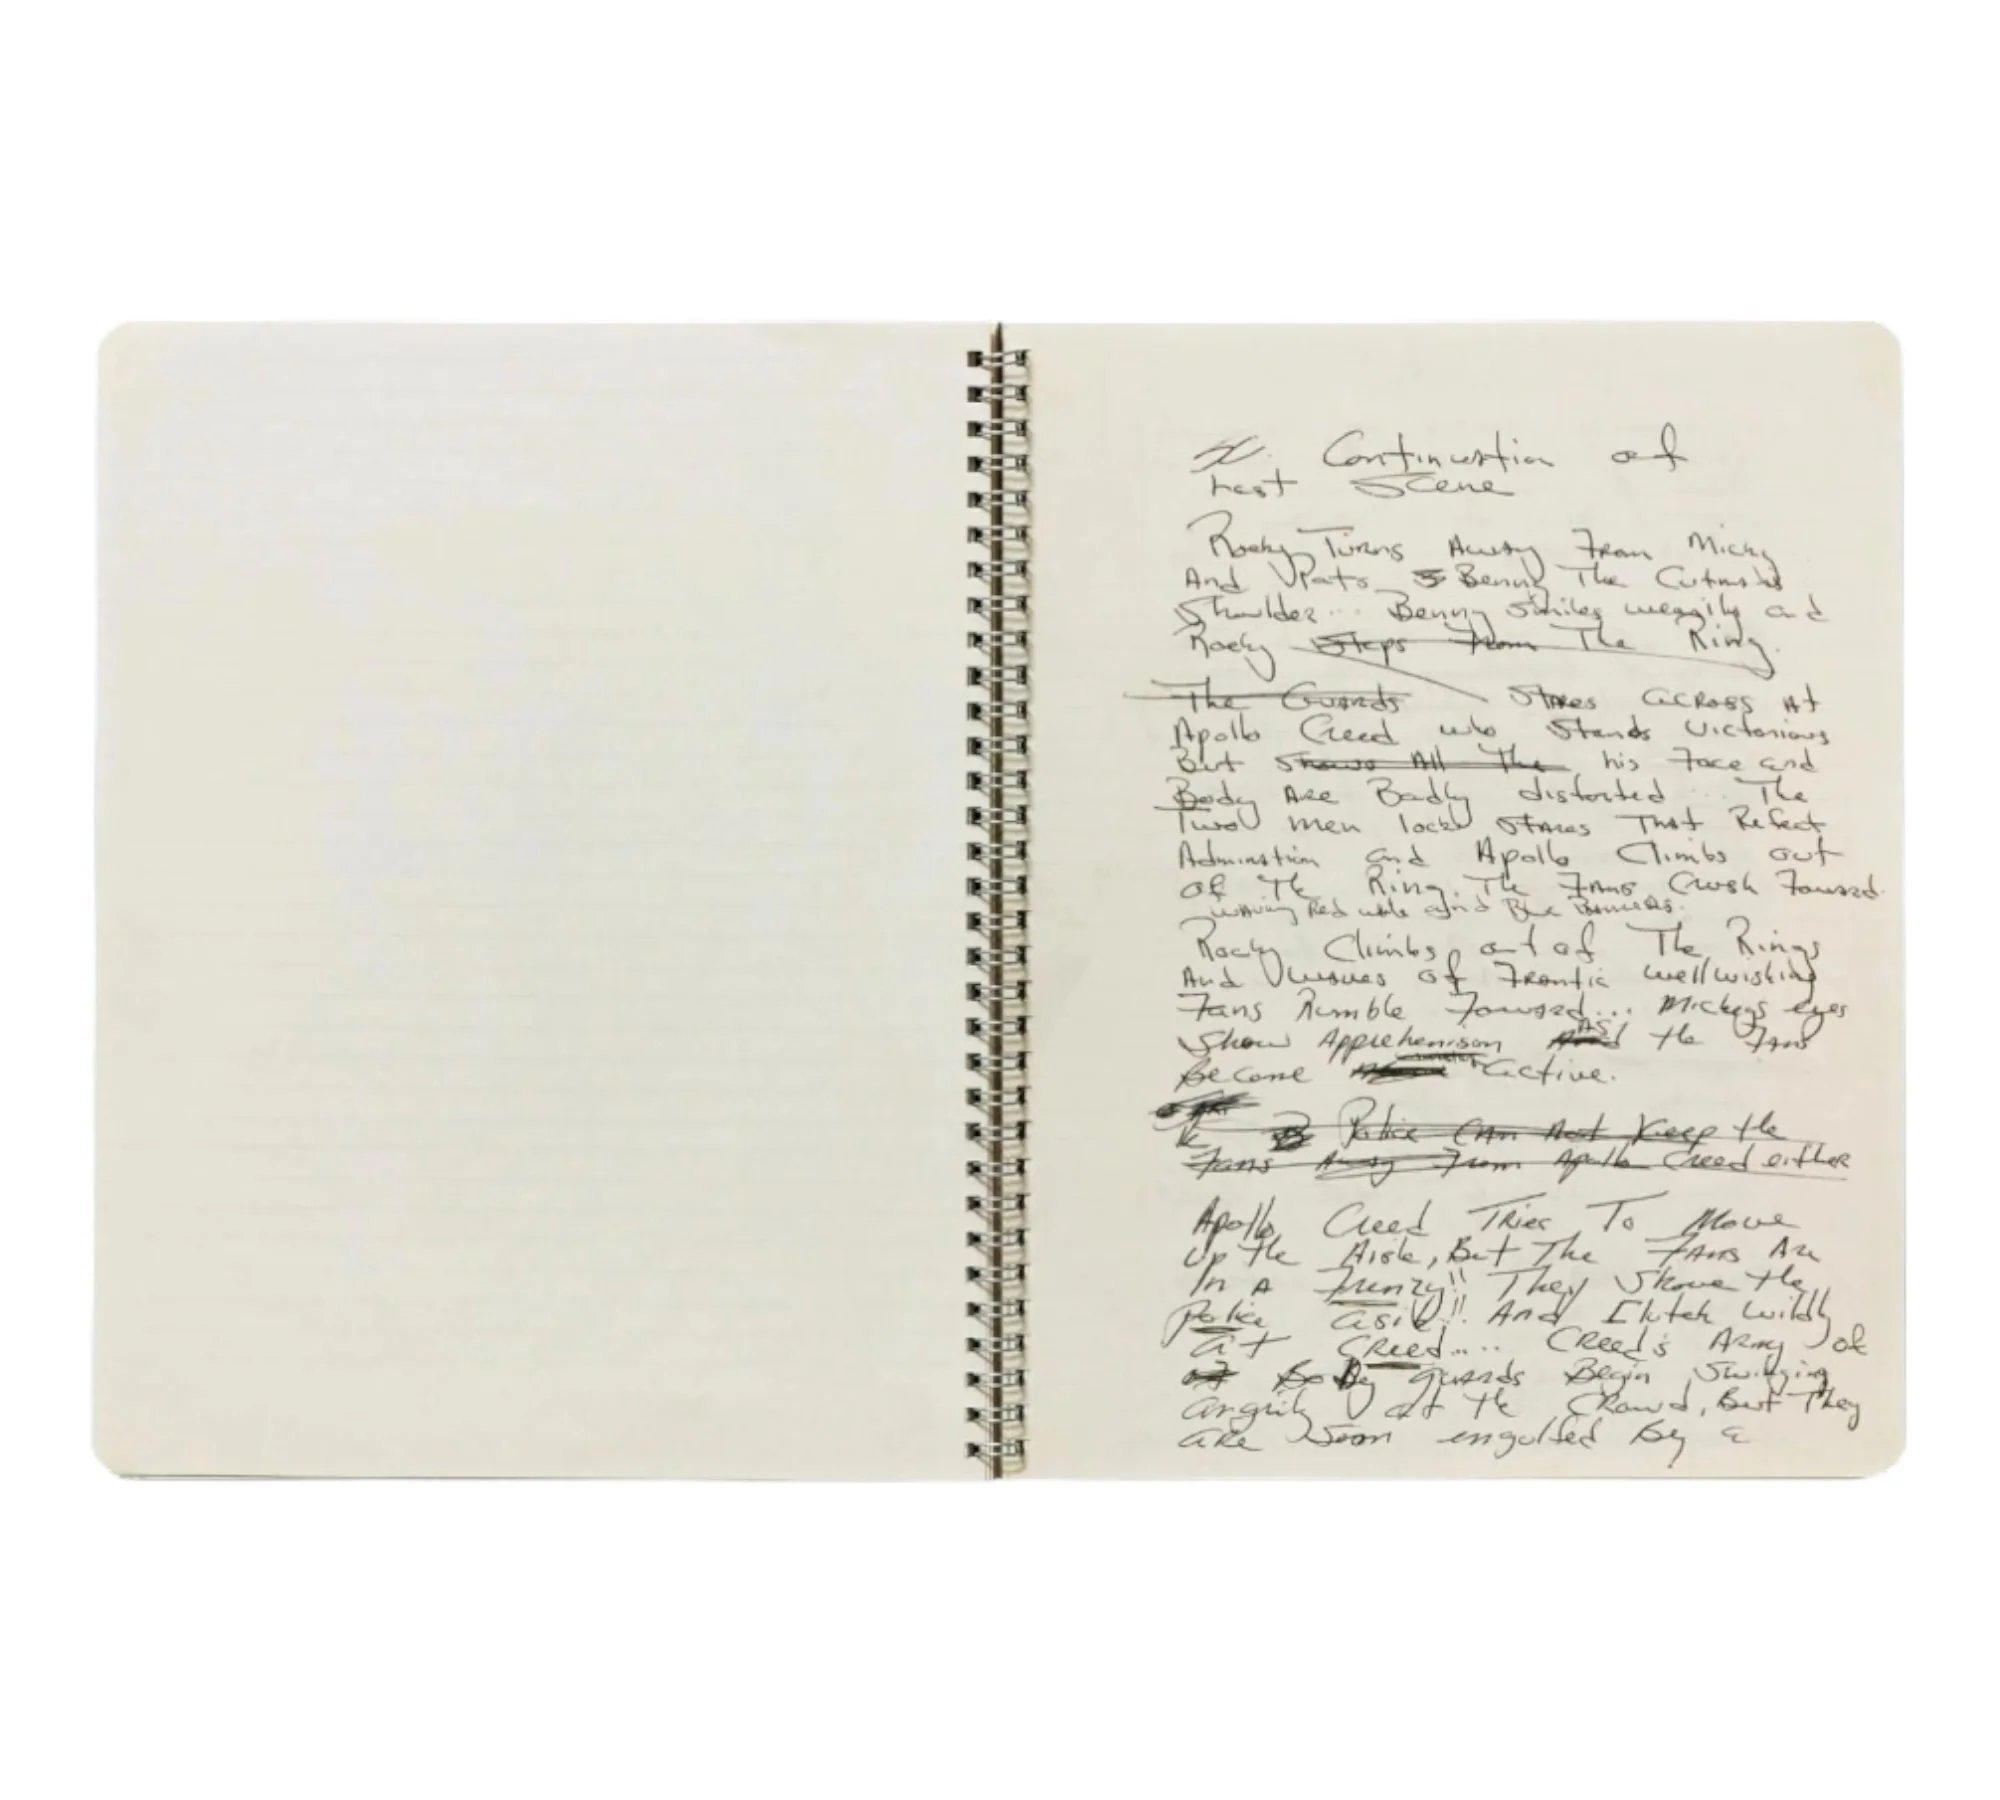 Continuation of
Last Scene
Rocky Turns Away From Micky
And Pats Benny The Cutmans
Shoulder... Benny Smiles wearily and
Rocky Steps From The Ring.
The Guards Stares across At
Apollo Creed who Stands Victorious
But Shows All The his Face and
Body Are Badly distorted... The
Two men lock Stares That Refect
Admiration and Apollo Climbs out
of The Ring. The Fans Crush Foward.
waving Red white and Blue Banners.
Rocky Climbs out of The Rings
And waves of Frantic wellwishing
Fans Rumble Foward... Mickeys eyes
Show Apprehenison As the Fans
Become active.
Police Can Not Keep the
Fans Away From Apollo Creed either
Apollo Creed Tries To Move
Up the Aisle, But The Fans Are
In A Frenzy!! They Shove the
Police aside!! And Clutch Wildly
at Creed.... Creed's Army of
Body guards Begin Swinging
angrily at the Crowd, But They
are Soon engulfed By a